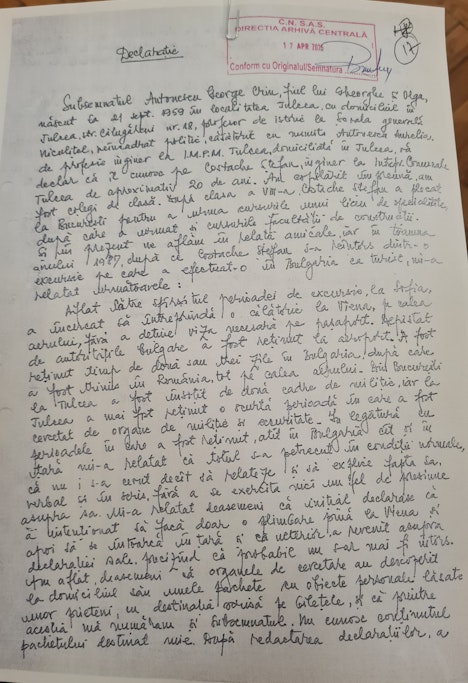 C.N.S.A.S.
DIRECȚIA ARHIVĂ CENTRALĂ
17 APR 2025
Conform cu Originalul/Semnătura
17
Declarație
Subsemnatul Antonescu George Orin, fiul lui Gheorghe și Olga,
născut la 21 sept. 1959 în localitatea Tulcea, cu domiciliul în
Tulcea, str. Călugăreni nr. 18, profesor de istorie la Școala generală
Niculițel, neîncadrat politic, căsătorit cu numita Antonescu Aurelia,
de profesie inginer la I.M.P.M. Tulcea, domiciliată în Tulcea,
declar că îl cunosc pe Costache Ștefan, inginer la Intepr. Comerale
Tulcea de aproximativ 20 de ani. Am copilărit împreună, am
fost colegi de clasă. După clasa a VIII-a Costache Ștefan a plecat
la București pentru a urma cursurile unui liceu de specialitate
după care a urmat și cursurile facultății de construcții.
Și în prezent ne aflăm în relații amicale, iar în toamna
anului 1987, după ce Costache Ștefan s-a reîntors dintr-o
excursie pe care a efectuat-o în Bulgaria ca turist, mi-a
relatat următoarele:
Aflat către sfîrșitul perioadei de excursie, la Sofia,
a încercat să întreprindă o călătorie la Viena, pe calea
aerului, fără a deține viza necesară pe pașaport. Depistat
de autoritățile bulgare a fost reținut la aeroport. A fost
reținut timp de două sau trei zile în Bulgaria, după care
a fost trimis în România, tot pe calea aerului. Din București
la Tulcea a fost însoțit de două cadre de miliție, iar la
Tulcea a mai fost reținut o scurtă perioadă în care a fost
cercetat de organe de miliție și securitate. În legătură cu
perioadele în care a fost reținut, atît în Bulgaria cît și în
țară mi-a relatat că totul s-a petrecut în condiții normale,
că nu i s-a cerut decît să relateze și să explice fapta sa,
verbal și în scris, fără a se exercita nici un fel de presiune
asupra sa. Mi-a relatat deasemeni că inițial declarase că
a intenționat să facă doar o plimbare pînă la Viena și
apoi să se întoarcă în țară și că ulterior a revenit asupra
declarației sale, precizînd că probabil nu s-ar mai fi întors.
Am aflat, deasemeni că organele de cercetare au descoperit
la domiciliul său unele pachete cu obiecte personale lăsate
unor prieteni, cu destinația scrisă pe biletele, și că printre
aceștia mă număram și subsemnatul. Nu cunosc conținutul
pachetului destinat mie. După redactarea declarațiilor, a